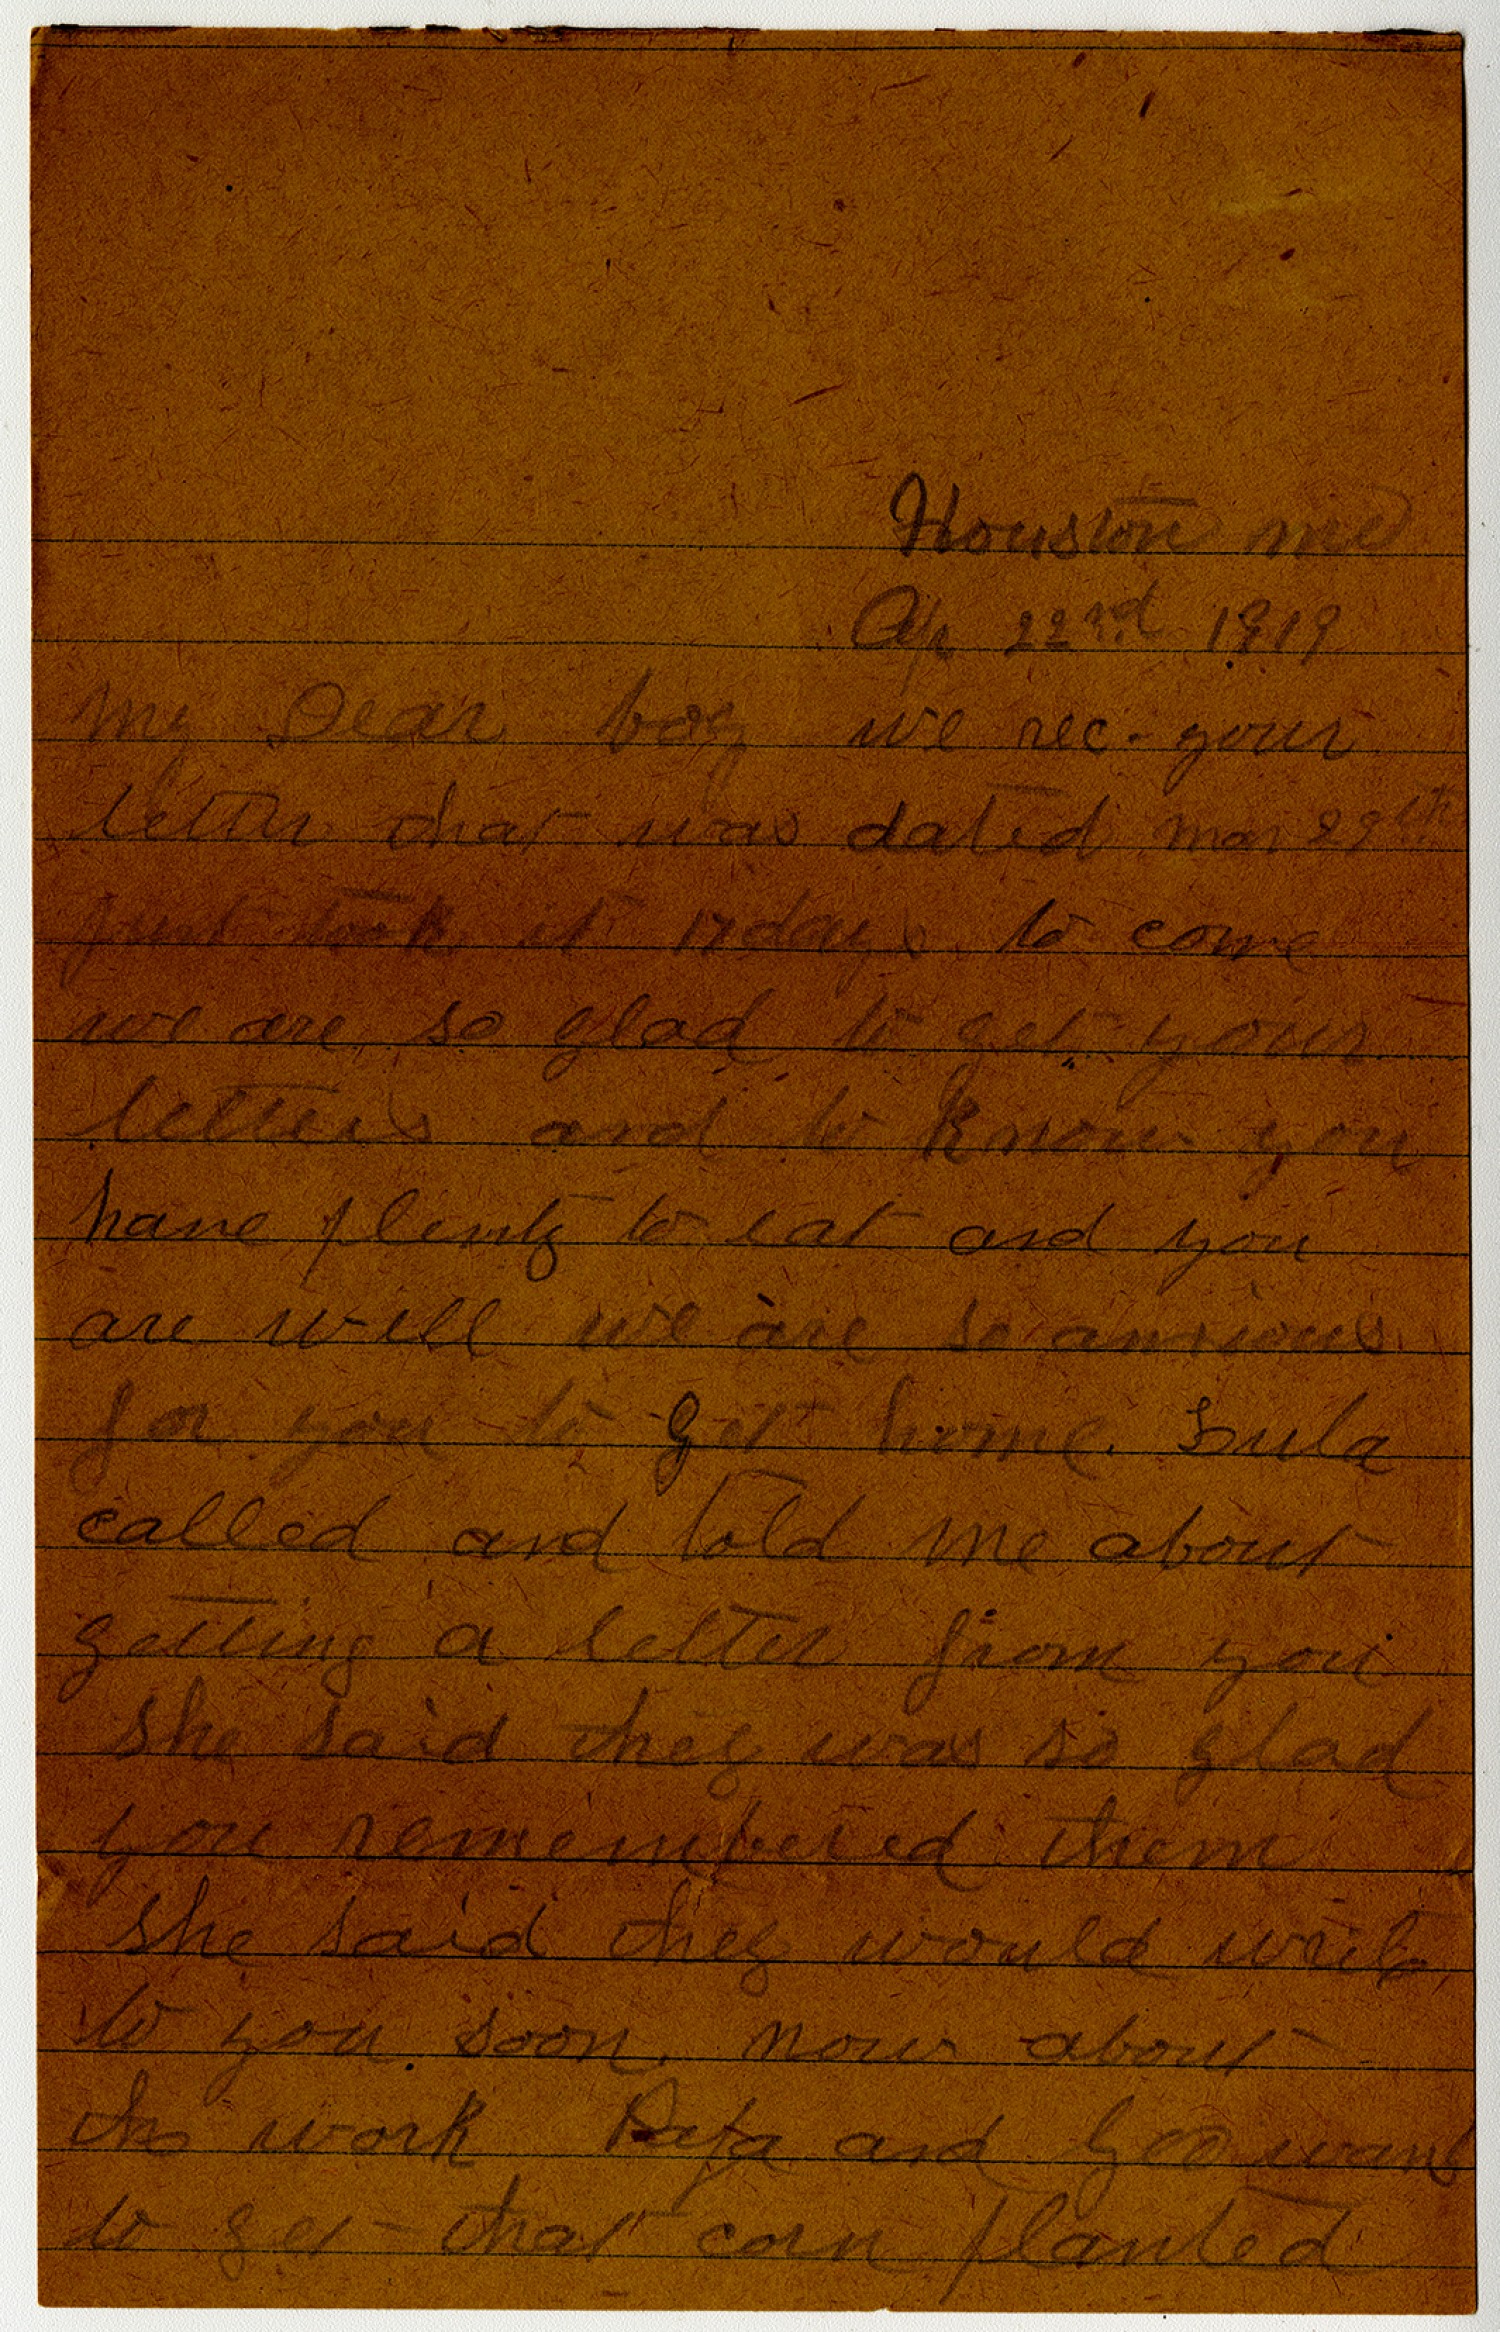 Houston mo
Ap 22nd 1919
My Dear boy we rec. your
letter that was dated Mar 29th
just took it 17 days to come
we are so glad to get your
letters and to know you
have plenty to eat and you
are well we are so anxious
for you to get home. Lula
called and told me about
getting a letter from you
she said they was so glad
you remembered them
she said they would write
to you soon. now about
the work Papa and Geo want
to get that corn planted